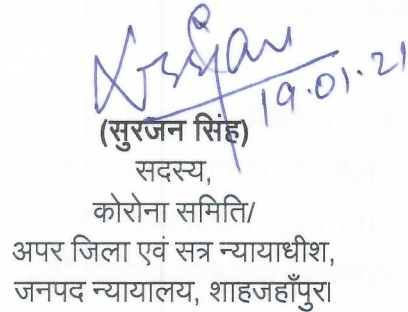 19.01.21
(सुरजन सिंह)
सदस्य,
कोरोना समिति/
अपर जिला एवं सत्र न्यायाधीश,
जनपद न्यायालय, शाहजहाँपुर।